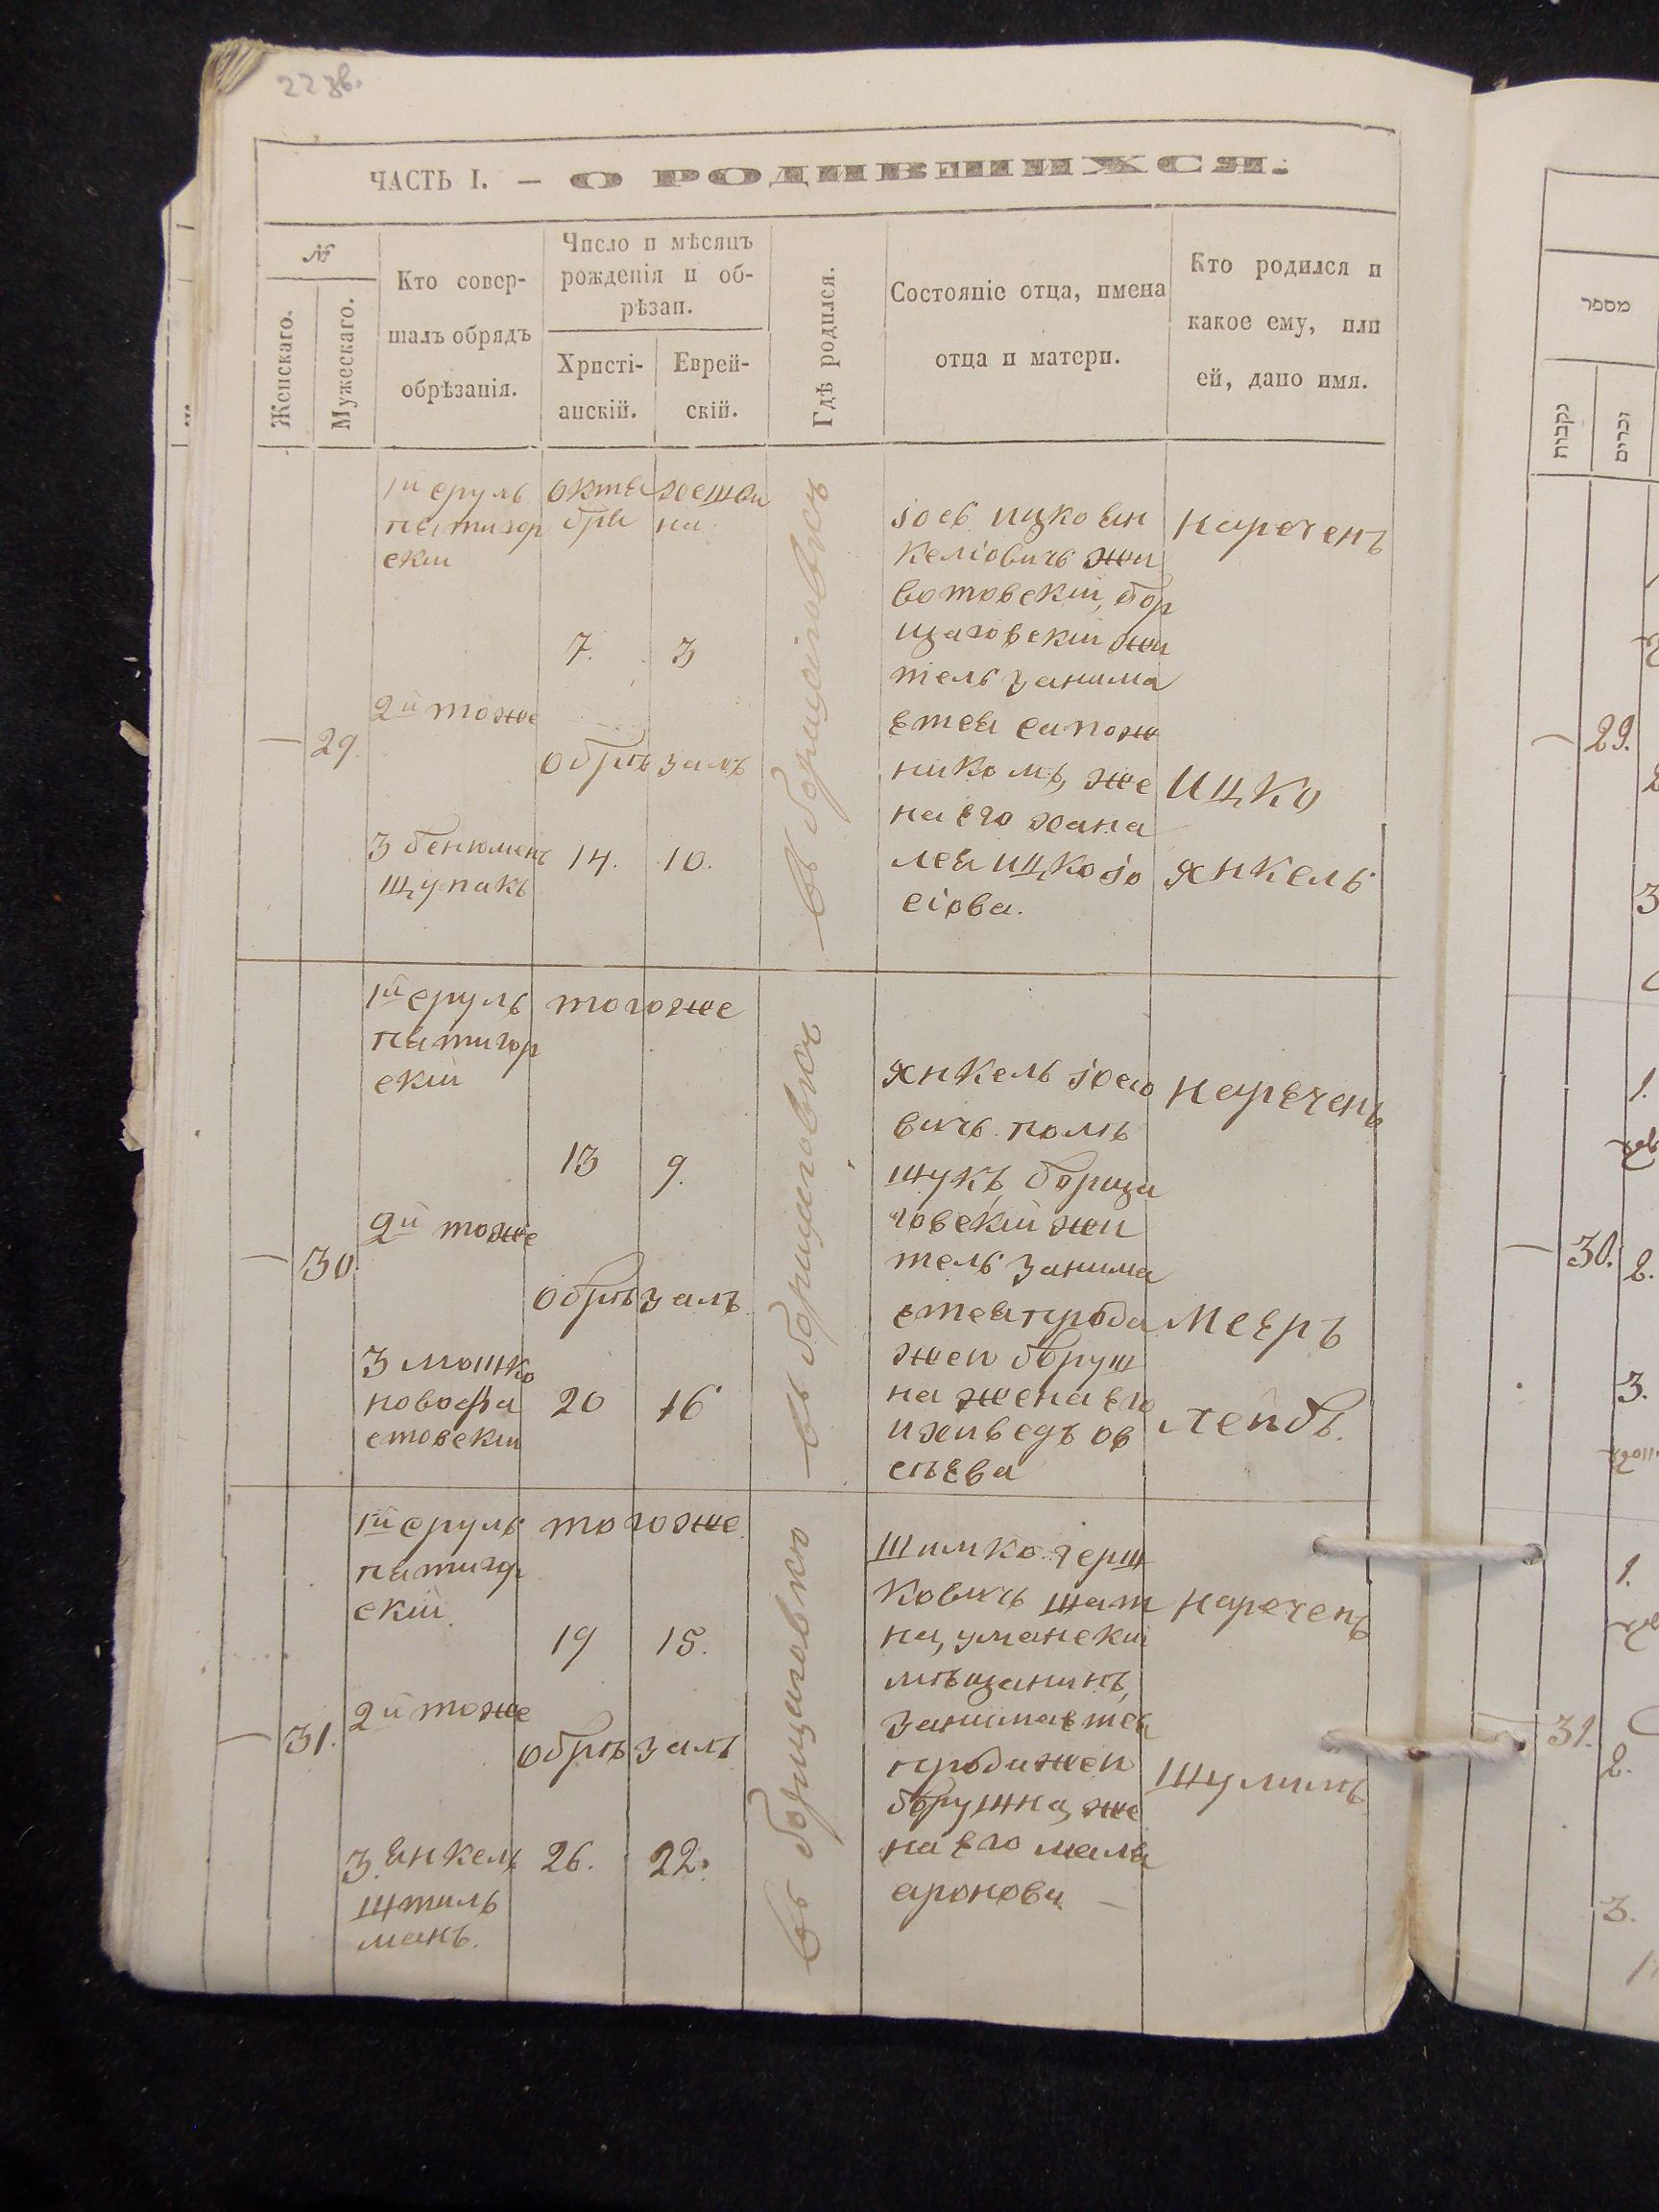 22 зв.
ЧАСТЬ I. — О РОДИВШИХСЯ.
№
Женскаго.
Мужескаго.
Кто совер-
шалъ обрядъ
обрѣзанія.
Число и мѣсяцъ
рожденія и об-
рѣзан.
Христі-
анскій.
Еврей-
скій.
Гдѣ родился.
Состояніе отца, имена
отца и матери.
Кто родился и
какое ему, или
ей, дано имя.
— 29.
1й сруль
пятигор
скій
2й тоже
3 бенюменъ
щупакъ
октя
бря
хешва
на
7. 3
обрѣзалъ
14. 10.
въ борщаговкѣ
іось ицко ян
келіовичъ жи
вотовскій, бор
щаговскій жи
тель занима
ется сапож
никомъ, же
на его хана
лея ицко іо
сіова.
нареченъ
ицко
янкель
— 30.
1й сруль
пятигор
скій
2й тоже
3 мошко
новофа
стовскій
тогоже
13 9.
обрѣзалъ
20 16
въ борщаговкѣ
янкель іосіо
вичъ полѣ
щукъ, борща
говскій жи
тель занима
ется прода
жей
на жена его
ихиведъ ов
сѣева
нареченъ
мееръ
лейбъ.
— 31.
1й сруль
пятигор
скій
2й тоже
3. янкель
штиль
манъ.
тогоже
19 15.
обрѣзалъ
26. 22.
въ борщаговкѣ
шимко герш
ковичъ шат
на, уманскій
мѣщанинъ,
занимается
продажей
же
на его маля
аронова —
нареченъ
шулимъ
מספר
נקבות
זכרים
— 29.
3
1.
— 30. 2.
3.
1.
31. 2.
3.